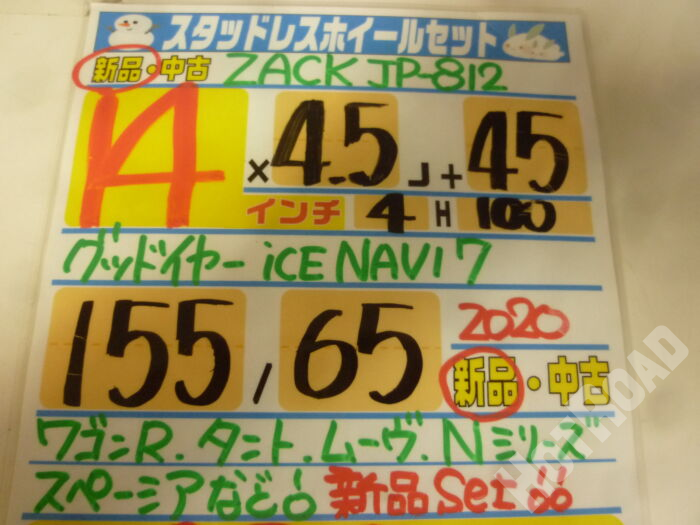 スタッドレスホイールセット
新品・中古 ZACK JP-812
14 × 4.5 J + 45
インチ 4 H 100
グッドイヤー iCE NAVI 7
155 / 65 2020 新品・中古
ワゴンR．タント．ムーヴ．Nシリーズ
スペーシアなど 新品Set品
HOTROAD